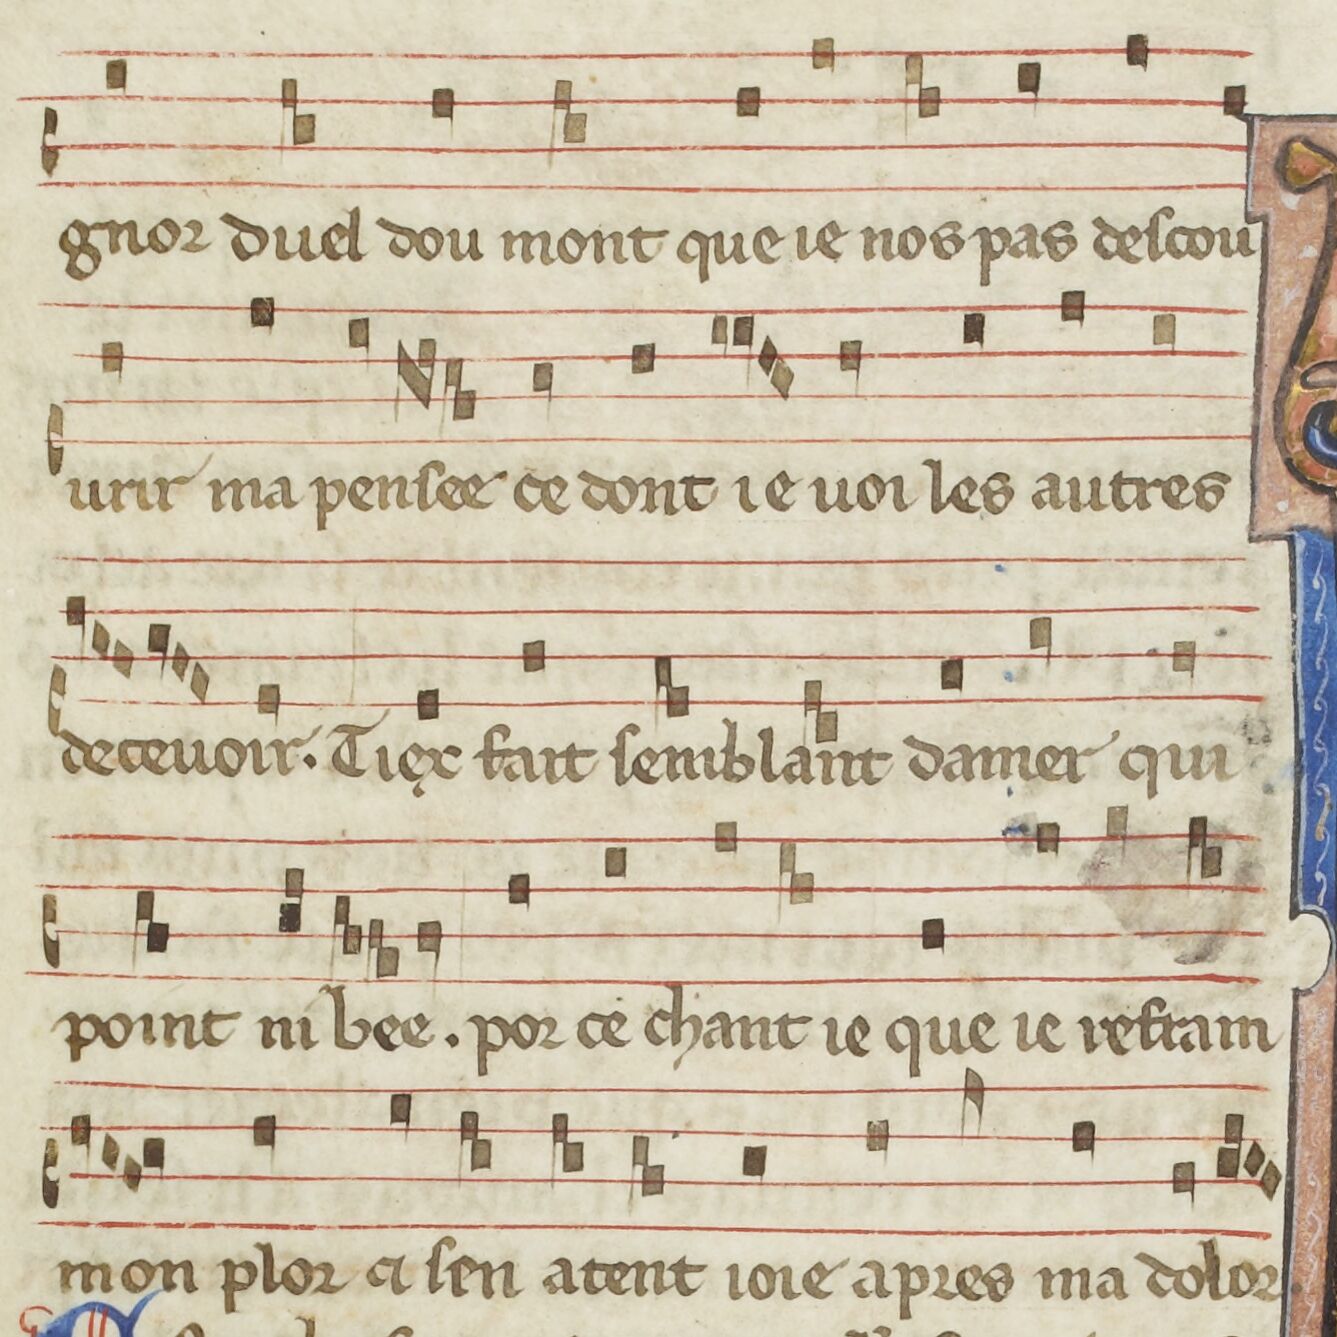 gnor duel dou mont que ie nos pas descou
urir ma pensee ce dont ie uoi les autres
deceuoir. Tiex fait semblant damer qui
point ni bee. por ce chant ie que ie refrain
mon plor et sen atent ioie apres ma dolor